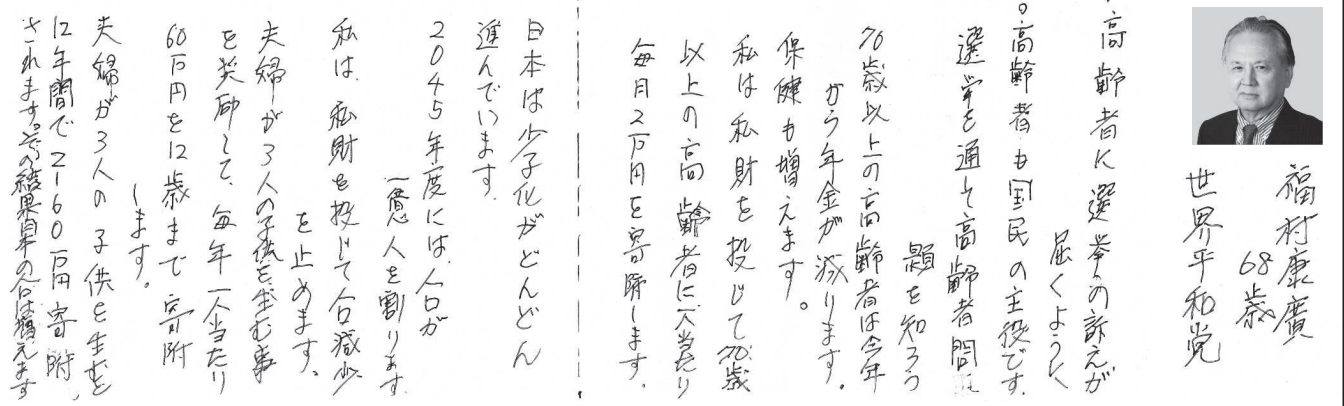 福村康廣
68歳
世界平和党
・高齢者に選挙の訴えが
届くように
。高齢者も国民の主役です。
選挙を通して高齢者問
題を知ろう
70歳以上の高齢者は今年
から年金が減ります。
保健も増えます。
私は私財を投じて70歳
以上の高齢者に一人当たり
毎月2万円を寄附します。
日本は少子化がどんどん
進んでいます。
2045年度には、人口が
一億人を割ります。
私は、私財を投じて人口減少
を止めます。
夫婦が3人の子供を生む事
を奨励して、毎年一人当たり
60万円を12歳まで寄附
します。
夫婦が3人の子供を生むと
12年間で2160万円寄附
されます。その結果日本の人口は増えます